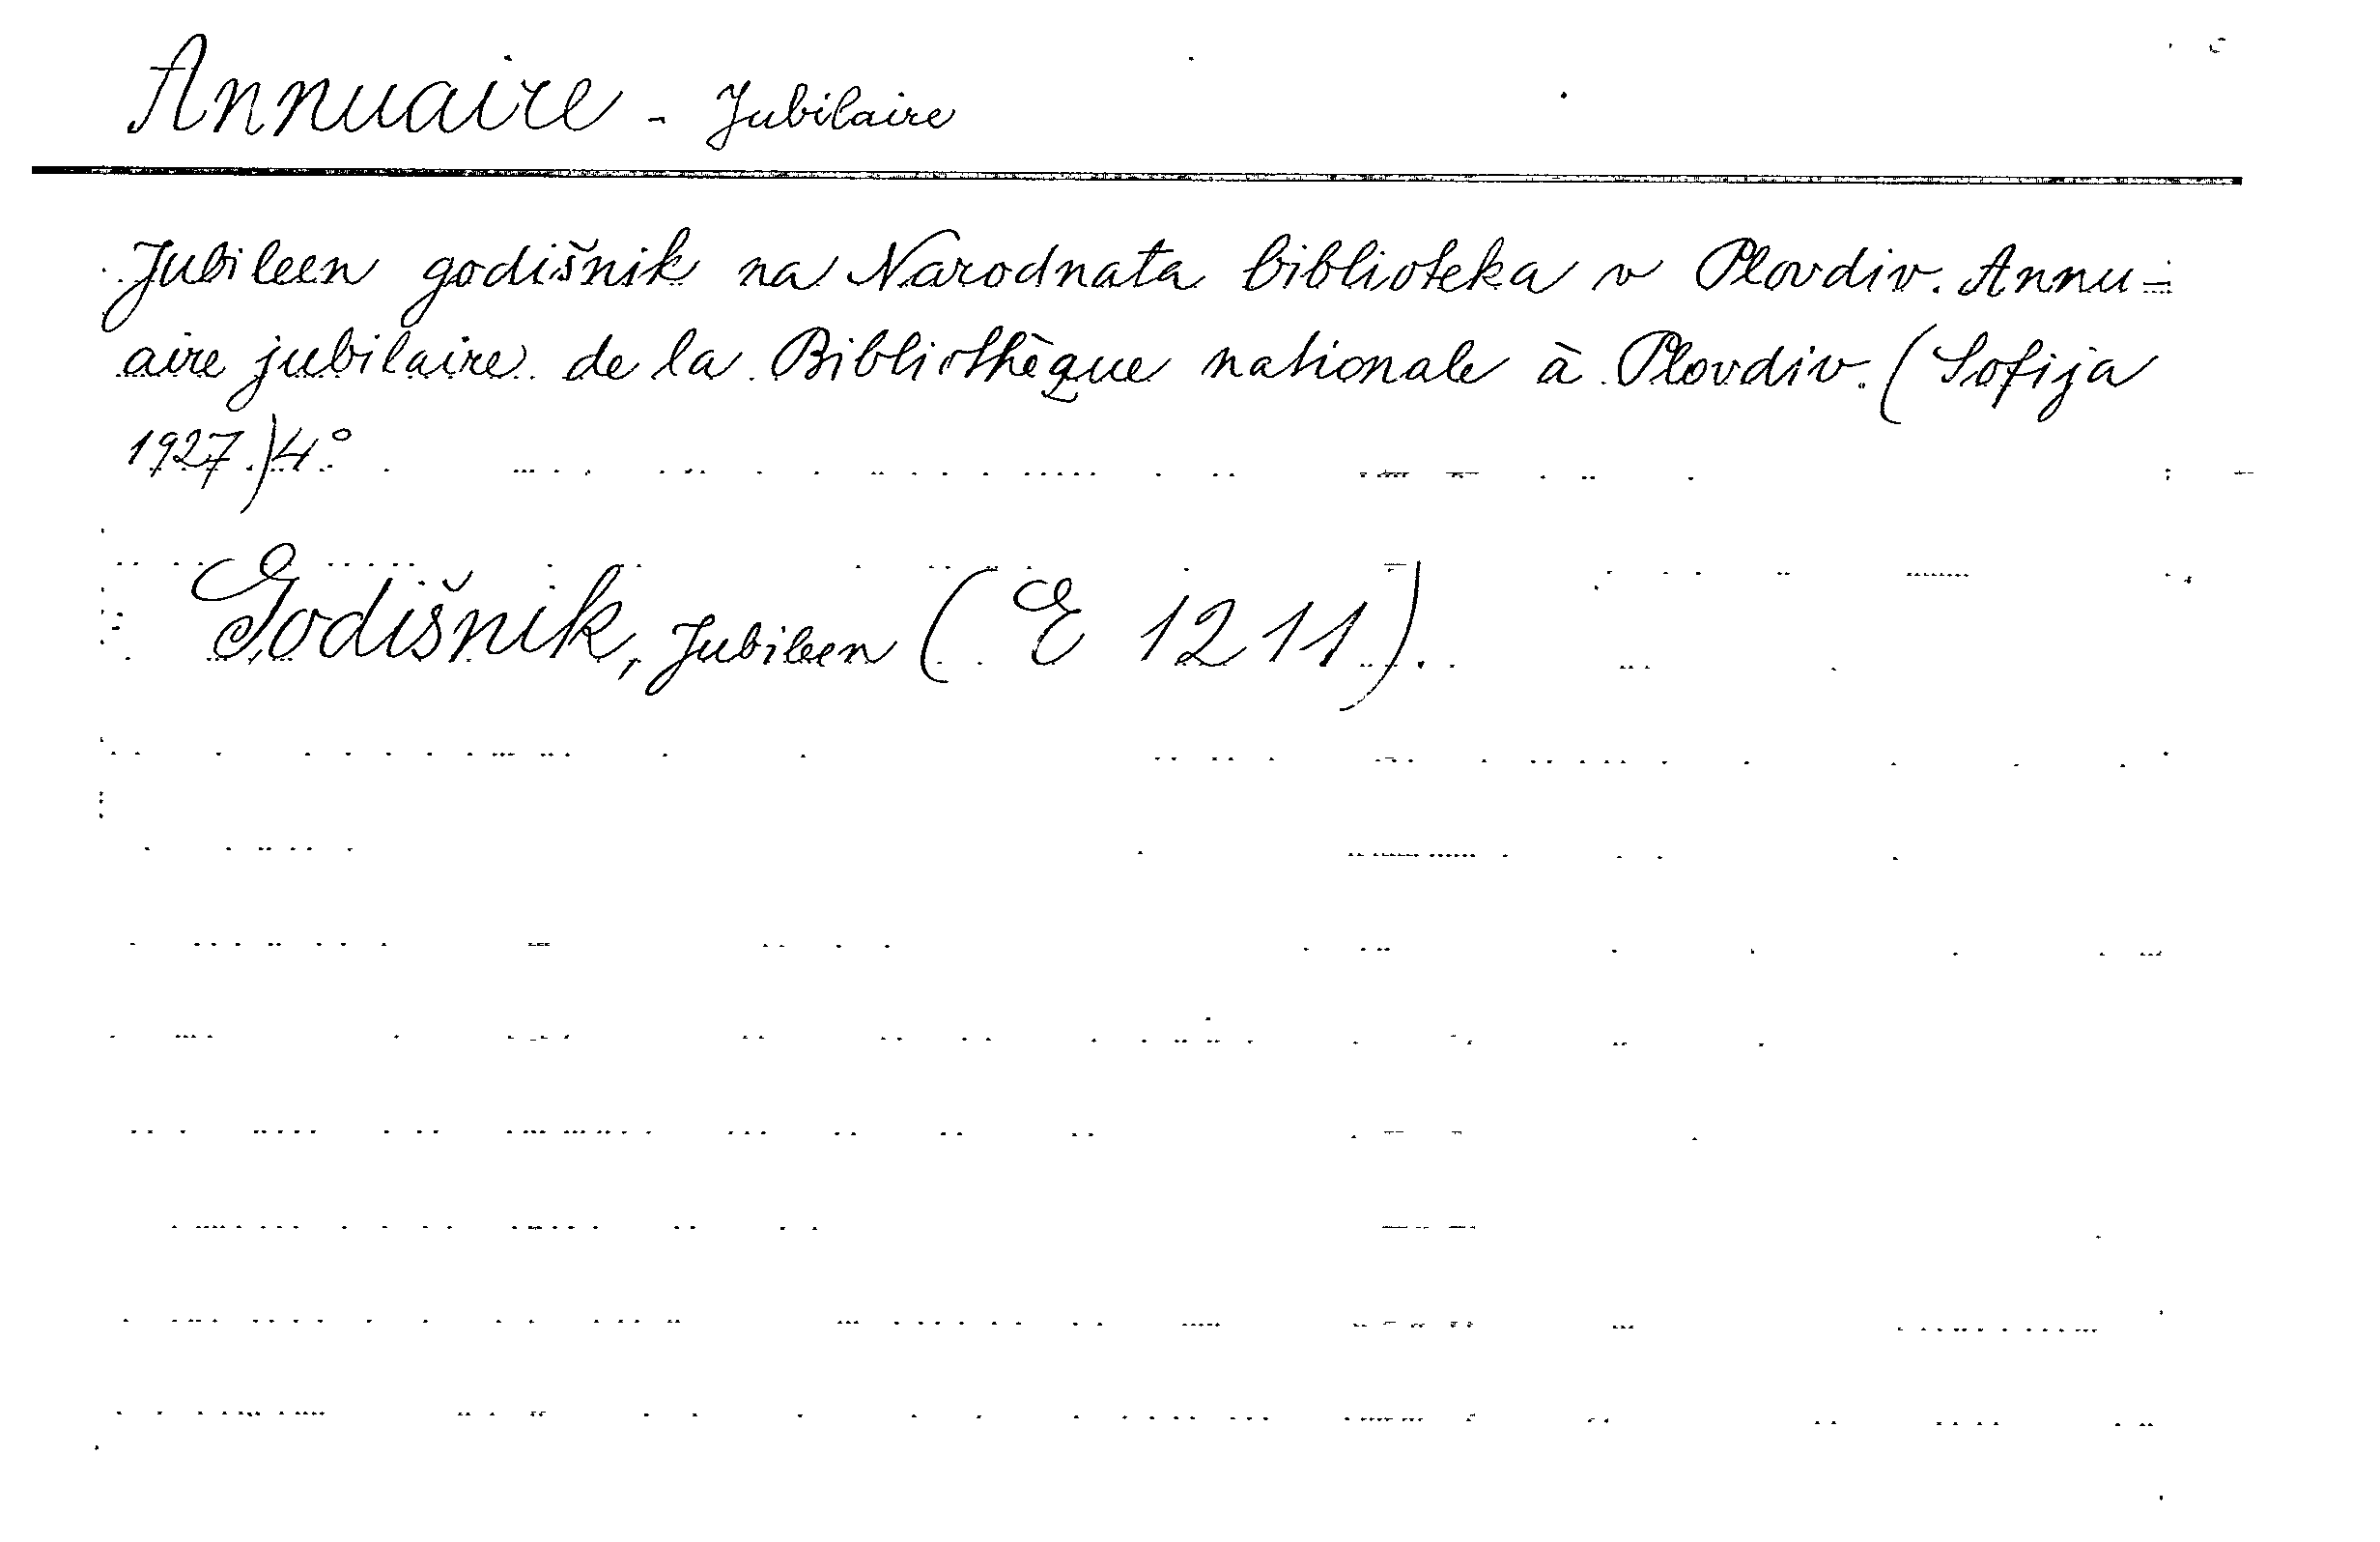 Annuaire - Jubilaire
Jubileen godišnik na Narodnata biblioteka v Plovdiv. Annu-
aire jubilaire de la Bibliothèque nationale à Plovdiv. (Sofija
1927.) 4°
Godišnik, Jubileen (E 1211).